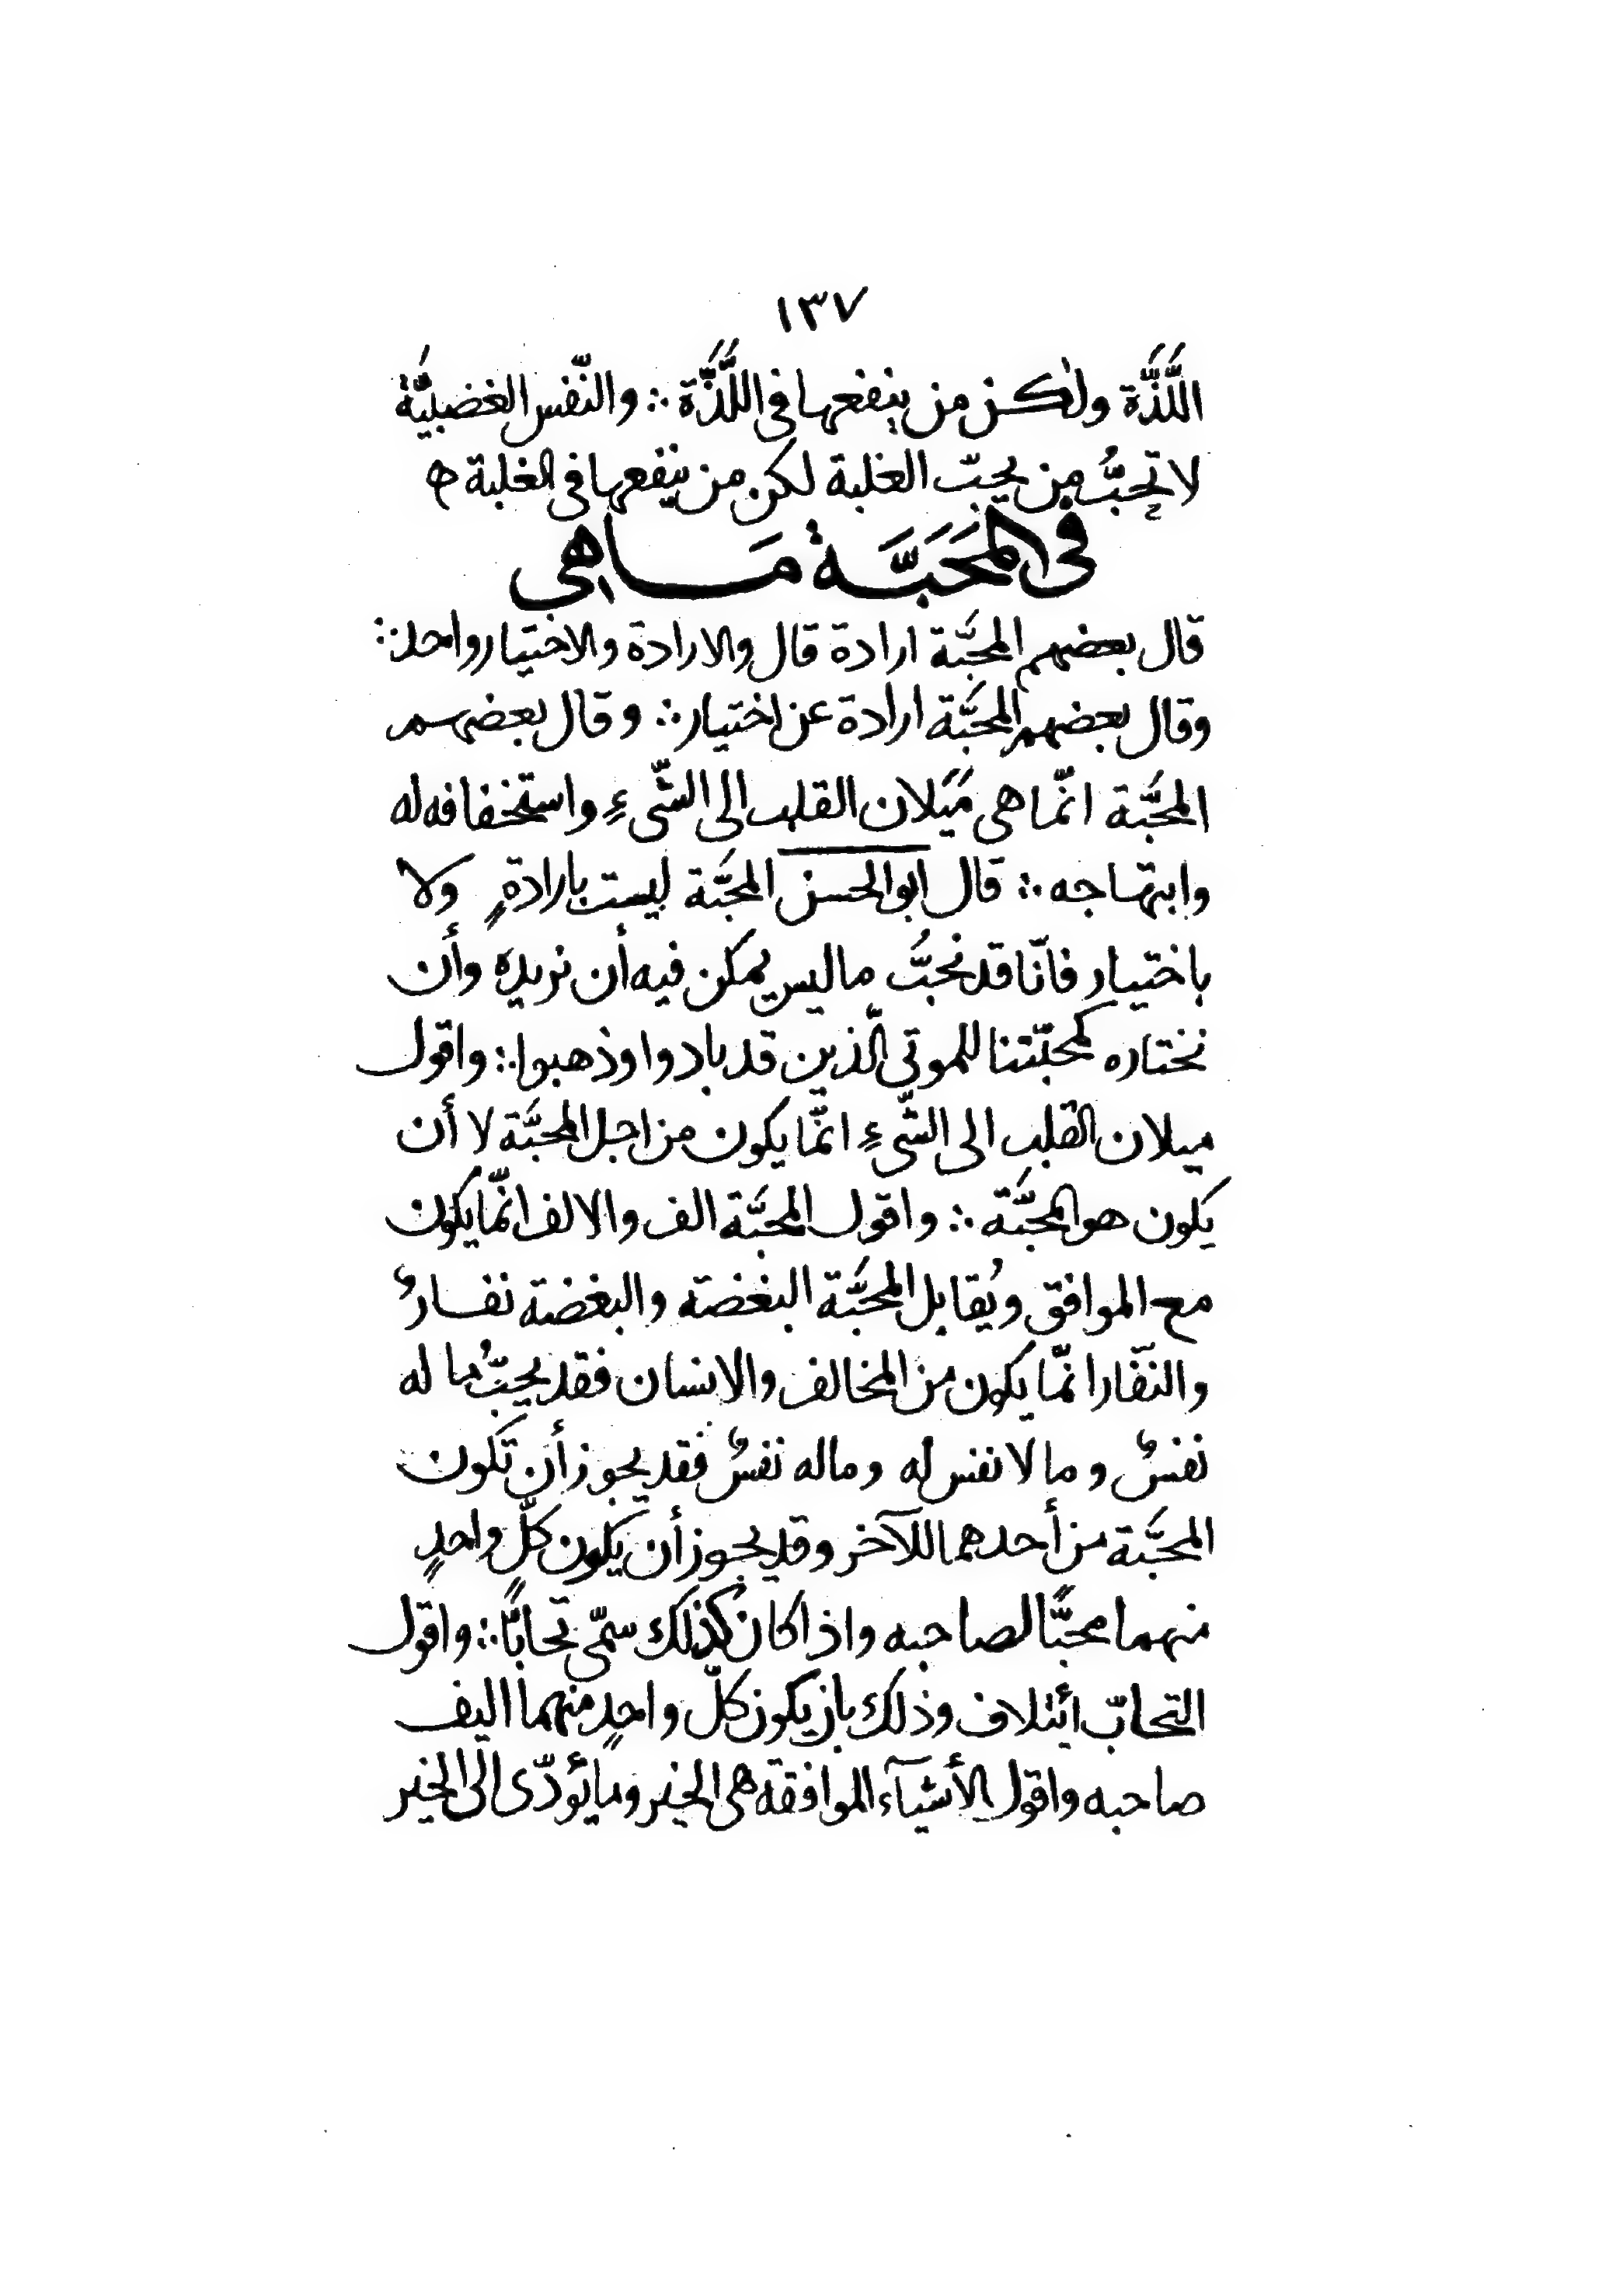 ١٣٧
اللَّذَّة ولكن من ينفعها فى اللَّذَّة ∴ والنّفس الغضبيَّة
لا تحبُّ من يحبّ الغلبة لكن من ينفعها فى الغلبة ه
فى المحَبَّة مَا هى
قال بعضهم المحبَّة ارادة قال والارادة والاختيار واحد ∴
وقال بعضهم المحبَّة ارادة عن اختيار ∴ وقال بعضهم
المحبَّة انّما هى مَيَلان القلب الى الشّىءِ واستخفافه له
وابتهاجه ∴ قال ابوالحسن المحبَّة ليست بارادةٍ ولا
باختيار فانّا قد نحبُّ ما ليس يمكن فيه أن نريده وأن
نختاره كمحبّتنا للموتى الّذين قد بادوا وذهبوا ∴ واقول
ميلان القلب الى الشّىءِ انّما يكون من اجل المحبَّة لا أن
يكون هو المحبَّة ∴ واقول المحبَّة الف والالف انّما يكون
مع الموافق ويُقابل المحبَّة البغضة والبغضة نفارٌ
والنّفار انّما يكون من المخالف والانسان فقد يحبُّ ما له
نفسٌ وما لا نفس له وماله نفسٌ فقد يجوز أن تكون
المحبَّة من أحدهما للآخر وقد يجوز أن يكون كلّ واحدٍ
منهما محبًّا لصاحبه واذا كان كذلك سمّى تحابًّا ∴ واقول
التحابّ ائتلاف وذلك بان يكون كلّ واحدٍ منهما اليف
صاحبه واقول الأشيآء الموافقة هى الخير وما يؤدّى الى الخير